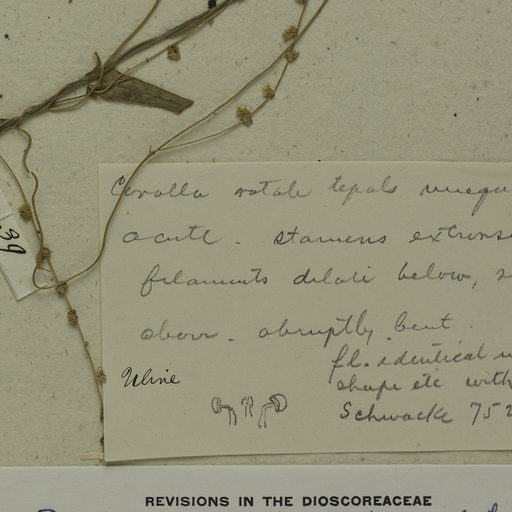 Corolla rotate tepals unequ
acute. stamens extrorse
filaments dilati below,
above. abruptly bent.
fl. identical
shape etc with
Schwacke 752
Uline
39
REVISIONS IN THE DIOSCOREACEAE